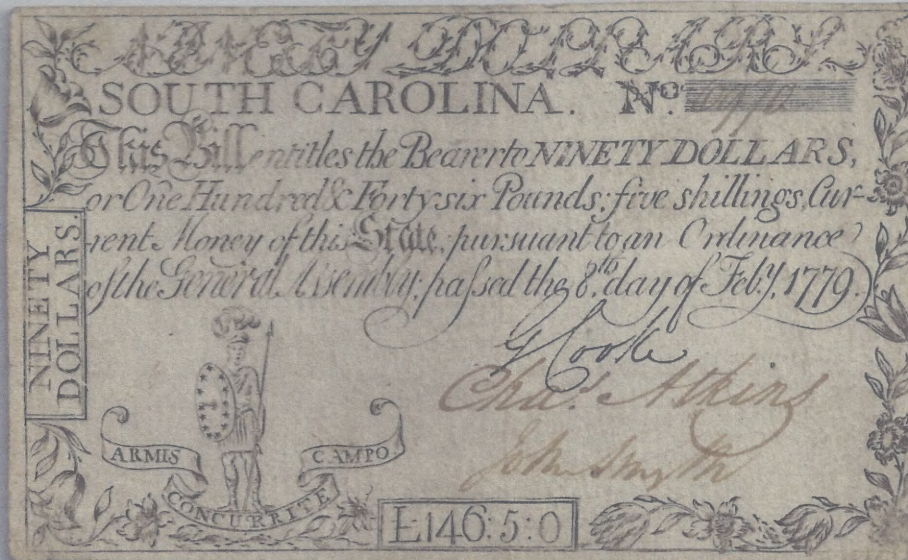 NINETY DOLLARS
SOUTH CAROLINA. No.
This Bill entitles the Bearer to NINETY DOLLARS,
or One Hundred & Forty six Pounds; five shillings, Cur-
rent Money of this State, pursuant to an Ordinance
of the General Assembly; passed the 8th. day of Feby. 1779.
NINETY
DOLLARS.
G Cooke
Chas. Atkins
John Smyth
ARMIS
CAMPO
CONCURRITE
£146:5:0